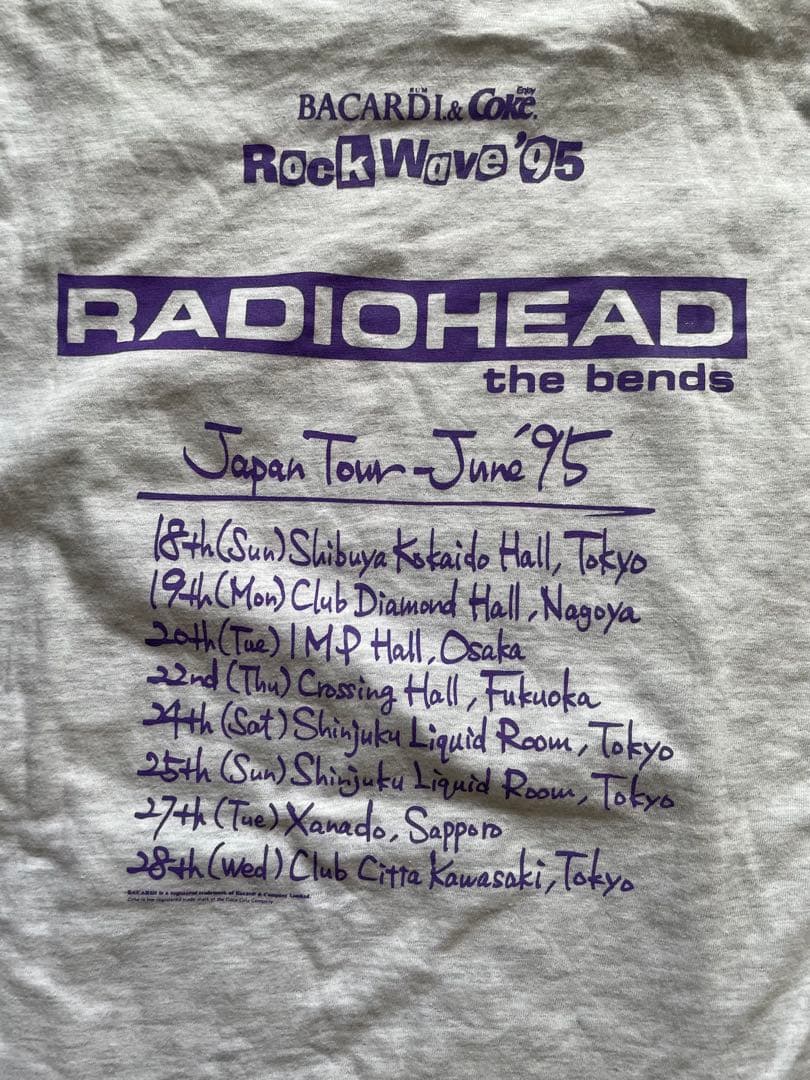 BACARDI RUM & Enjoy Coke.
Rock Wave '95
RADIOHEAD
the bends
Japan Tour - June '95
18th (Sun) Shibuya Kokaido Hall, Tokyo
19th (Mon) Club Diamond Hall, Nagoya
20th (Tue) IMP Hall, Osaka
22nd (Thu) Crossing Hall, Fukuoka
24th (Sat) Shinjuku Liquid Room, Tokyo
25th (Sun) Shinjuku Liquid Room, Tokyo
27th (Tue) Xanado, Sapporo
28th (Wed) Club Citta Kawasaki, Tokyo
BACARDI is a registered trademark of Bacardi & Company Limited.
Coke is the registered trade mark of the Coca-Cola Company